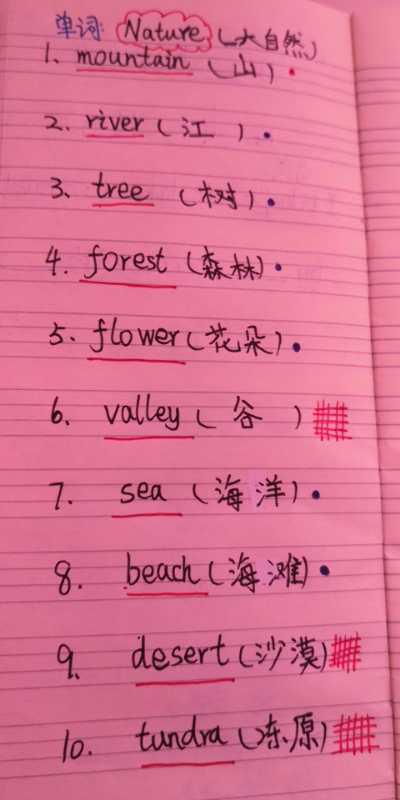 单词: Nature (大自然)
1. mountain (山)
2. river (江)
3. tree (树)
4. forest (森林)
5. flower (花朵)
6. valley (谷)
7. sea (海洋)
8. beach (海滩)
9. desert (沙漠)
10. tundra (冻原)